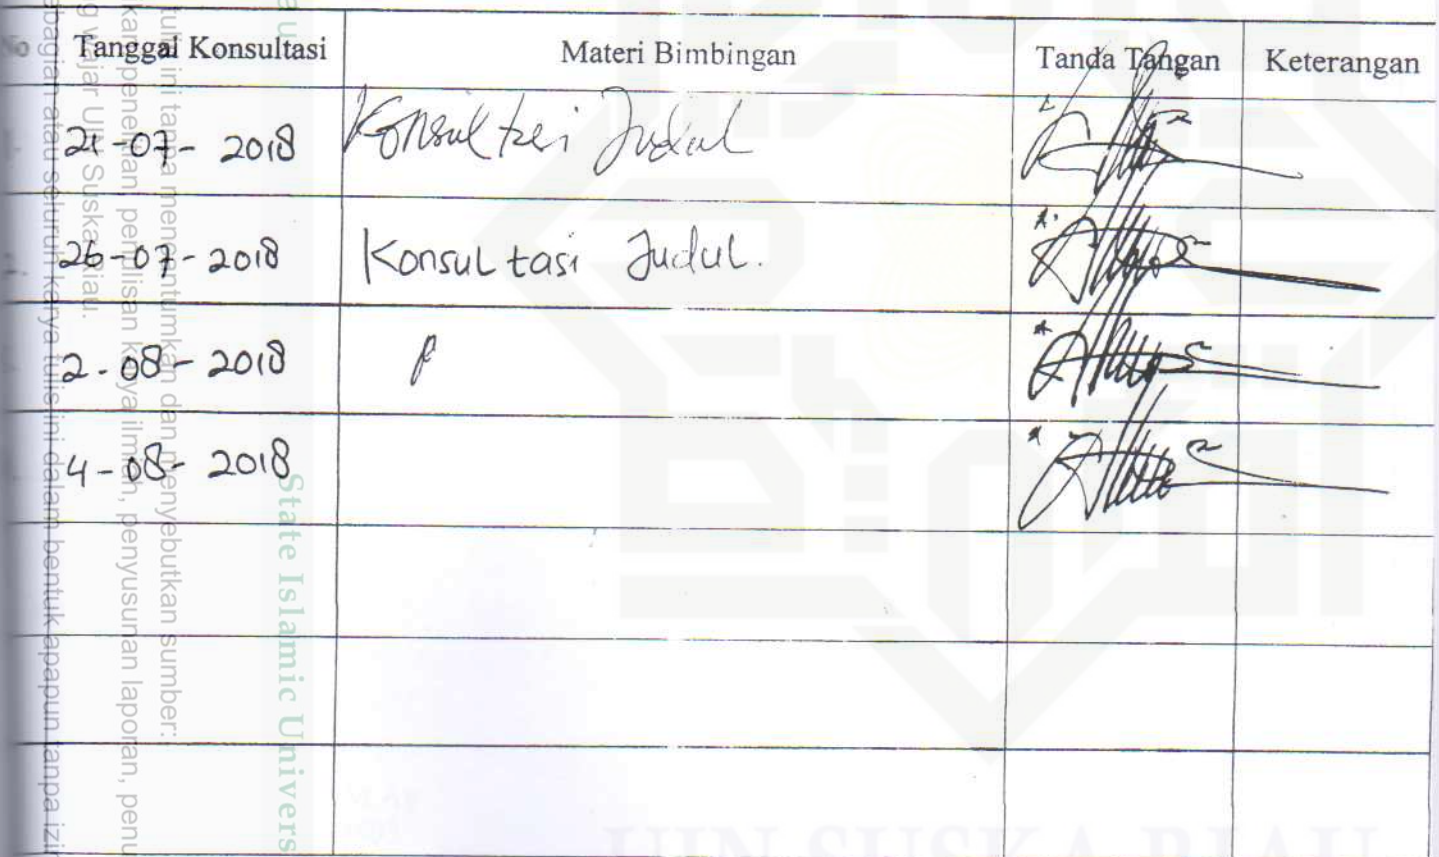 No Tanggal Konsultasi Materi Bimbingan Tanda Tangan Keterangan
21-07-2018 Konsultasi Judul
26-07-2018 Konsultasi Judul.
2-08-2018
4-08-2018
tulis ini tanpa mencantumkan dan menyebutkan sumber:
penelitian, penulisan karya ilmiah, penyusunan laporan,
wajar UIN Suska Riau.
sebagian atau seluruh karya tulis ini dalam bentuk apapun tanpa izin
State Islamic Univers
UIN SUSKA RIAU